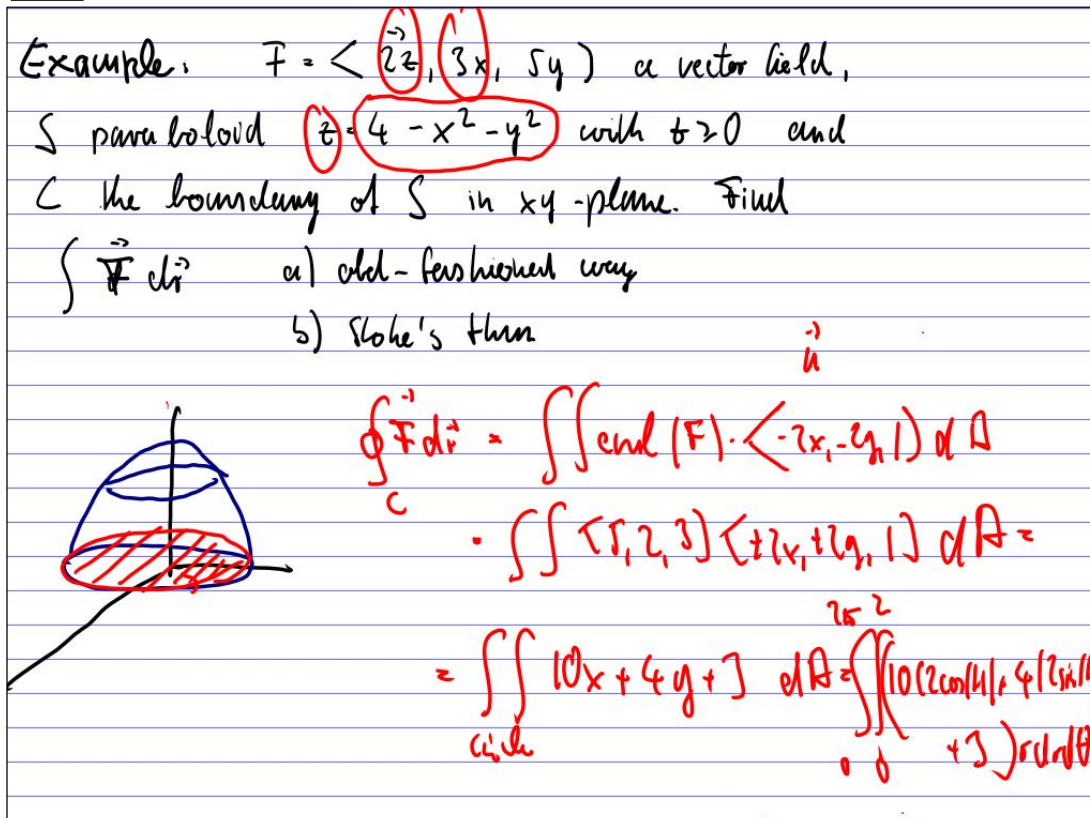 Example. F = < 2z, 3x, 5y ) a vector field,
S paraboloid z = 4 - x² - y² with z ≥ 0 and
C the boundary of S in xy-plane. Find
∫ F⃗ dr⃗ a) old-fashioned way
b) Stoke's thm
n⃗
∮ F⃗ dr⃗ = ∫∫ curl (F) · <-2x, -2y, 1) dA
C
= ∫∫ <5, 2, 3] <+2x, +2y, 1] dA =
= ∫∫ 10x + 4y + 3 dA = ∫₀^2π ∫₀^2 (10(2cos(t)) + 4(2sin(t
circle + 3 ) r dr dθ